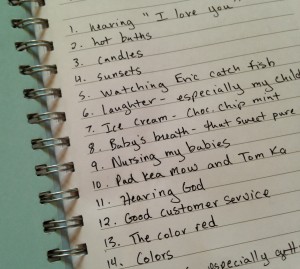 1. hearing "I love you"
2. hot baths
3. candles
4. sunsets
5. Watching Eric catch fish
6. laughter - especially my child
7. Ice Cream - Choc. chip mint
8. Baby's breath - that sweet pure
9. Nursing my babies
10. Pad Kea mow and Tom Ka
11. Hearing God
12. Good customer service
13. The color red
14. Colors
especially